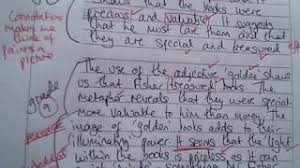 shows that the books were
precious and valuable. It suggests
that he must care for them and that
they are special and treasured
connotations
makes me think of
painting a picture
grade 9
The use of the adjective 'golden' shows
us that Fisher treasured books. The
metaphor reveals that they were special
more valuable to him than money. The
image of 'golden' books adds to their
illuminating power. It seems that the light
within the books is priceless, as it can